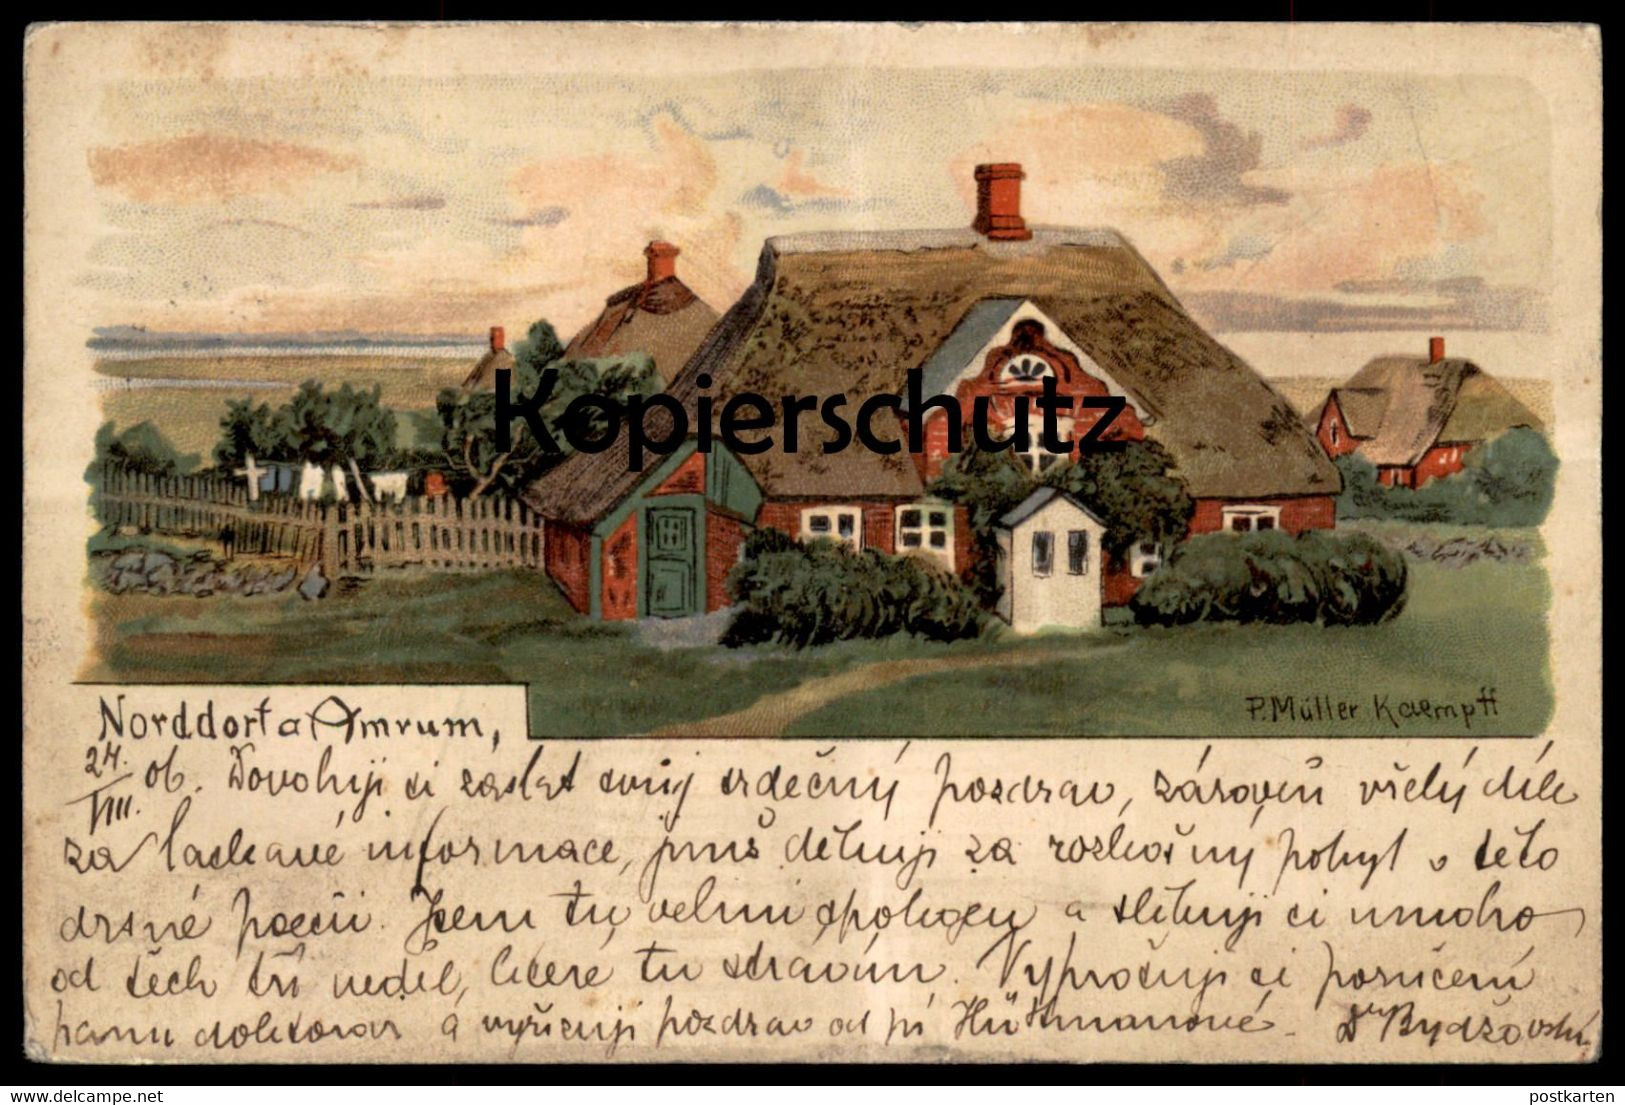 Kopierschutz
P. Müller Kaempff
Norddorf a Amrum,
24./VIII. 06. Dovoluji si zaslat svůj srdečný pozdrav, zároveň vřelý dík
za laskavé informace, jimiž děkuji za rozkošný pobyt v této
drsné poesii. Jsem tu velmi spokojen a slibuji si mnoho
od těch tří neděl, které tu strávím. Vyprošuji si poručení
panu doktorovi a vyřizuji pozdrav od pí Hüttmanové. Dr Bydžovský
www.delcampe.net
postkarten